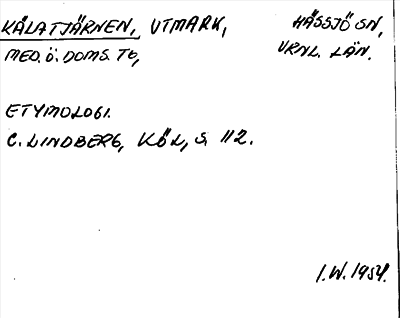 KÅLATJÄRNEN, UTMARK, HÄSSJÖ SN,
MED. Ö. DOMS. TG, VRNL. LÄN.
ETYMOLOGI.
C. LINDBERG, KÖL, S. 112.
I.W. 1954.